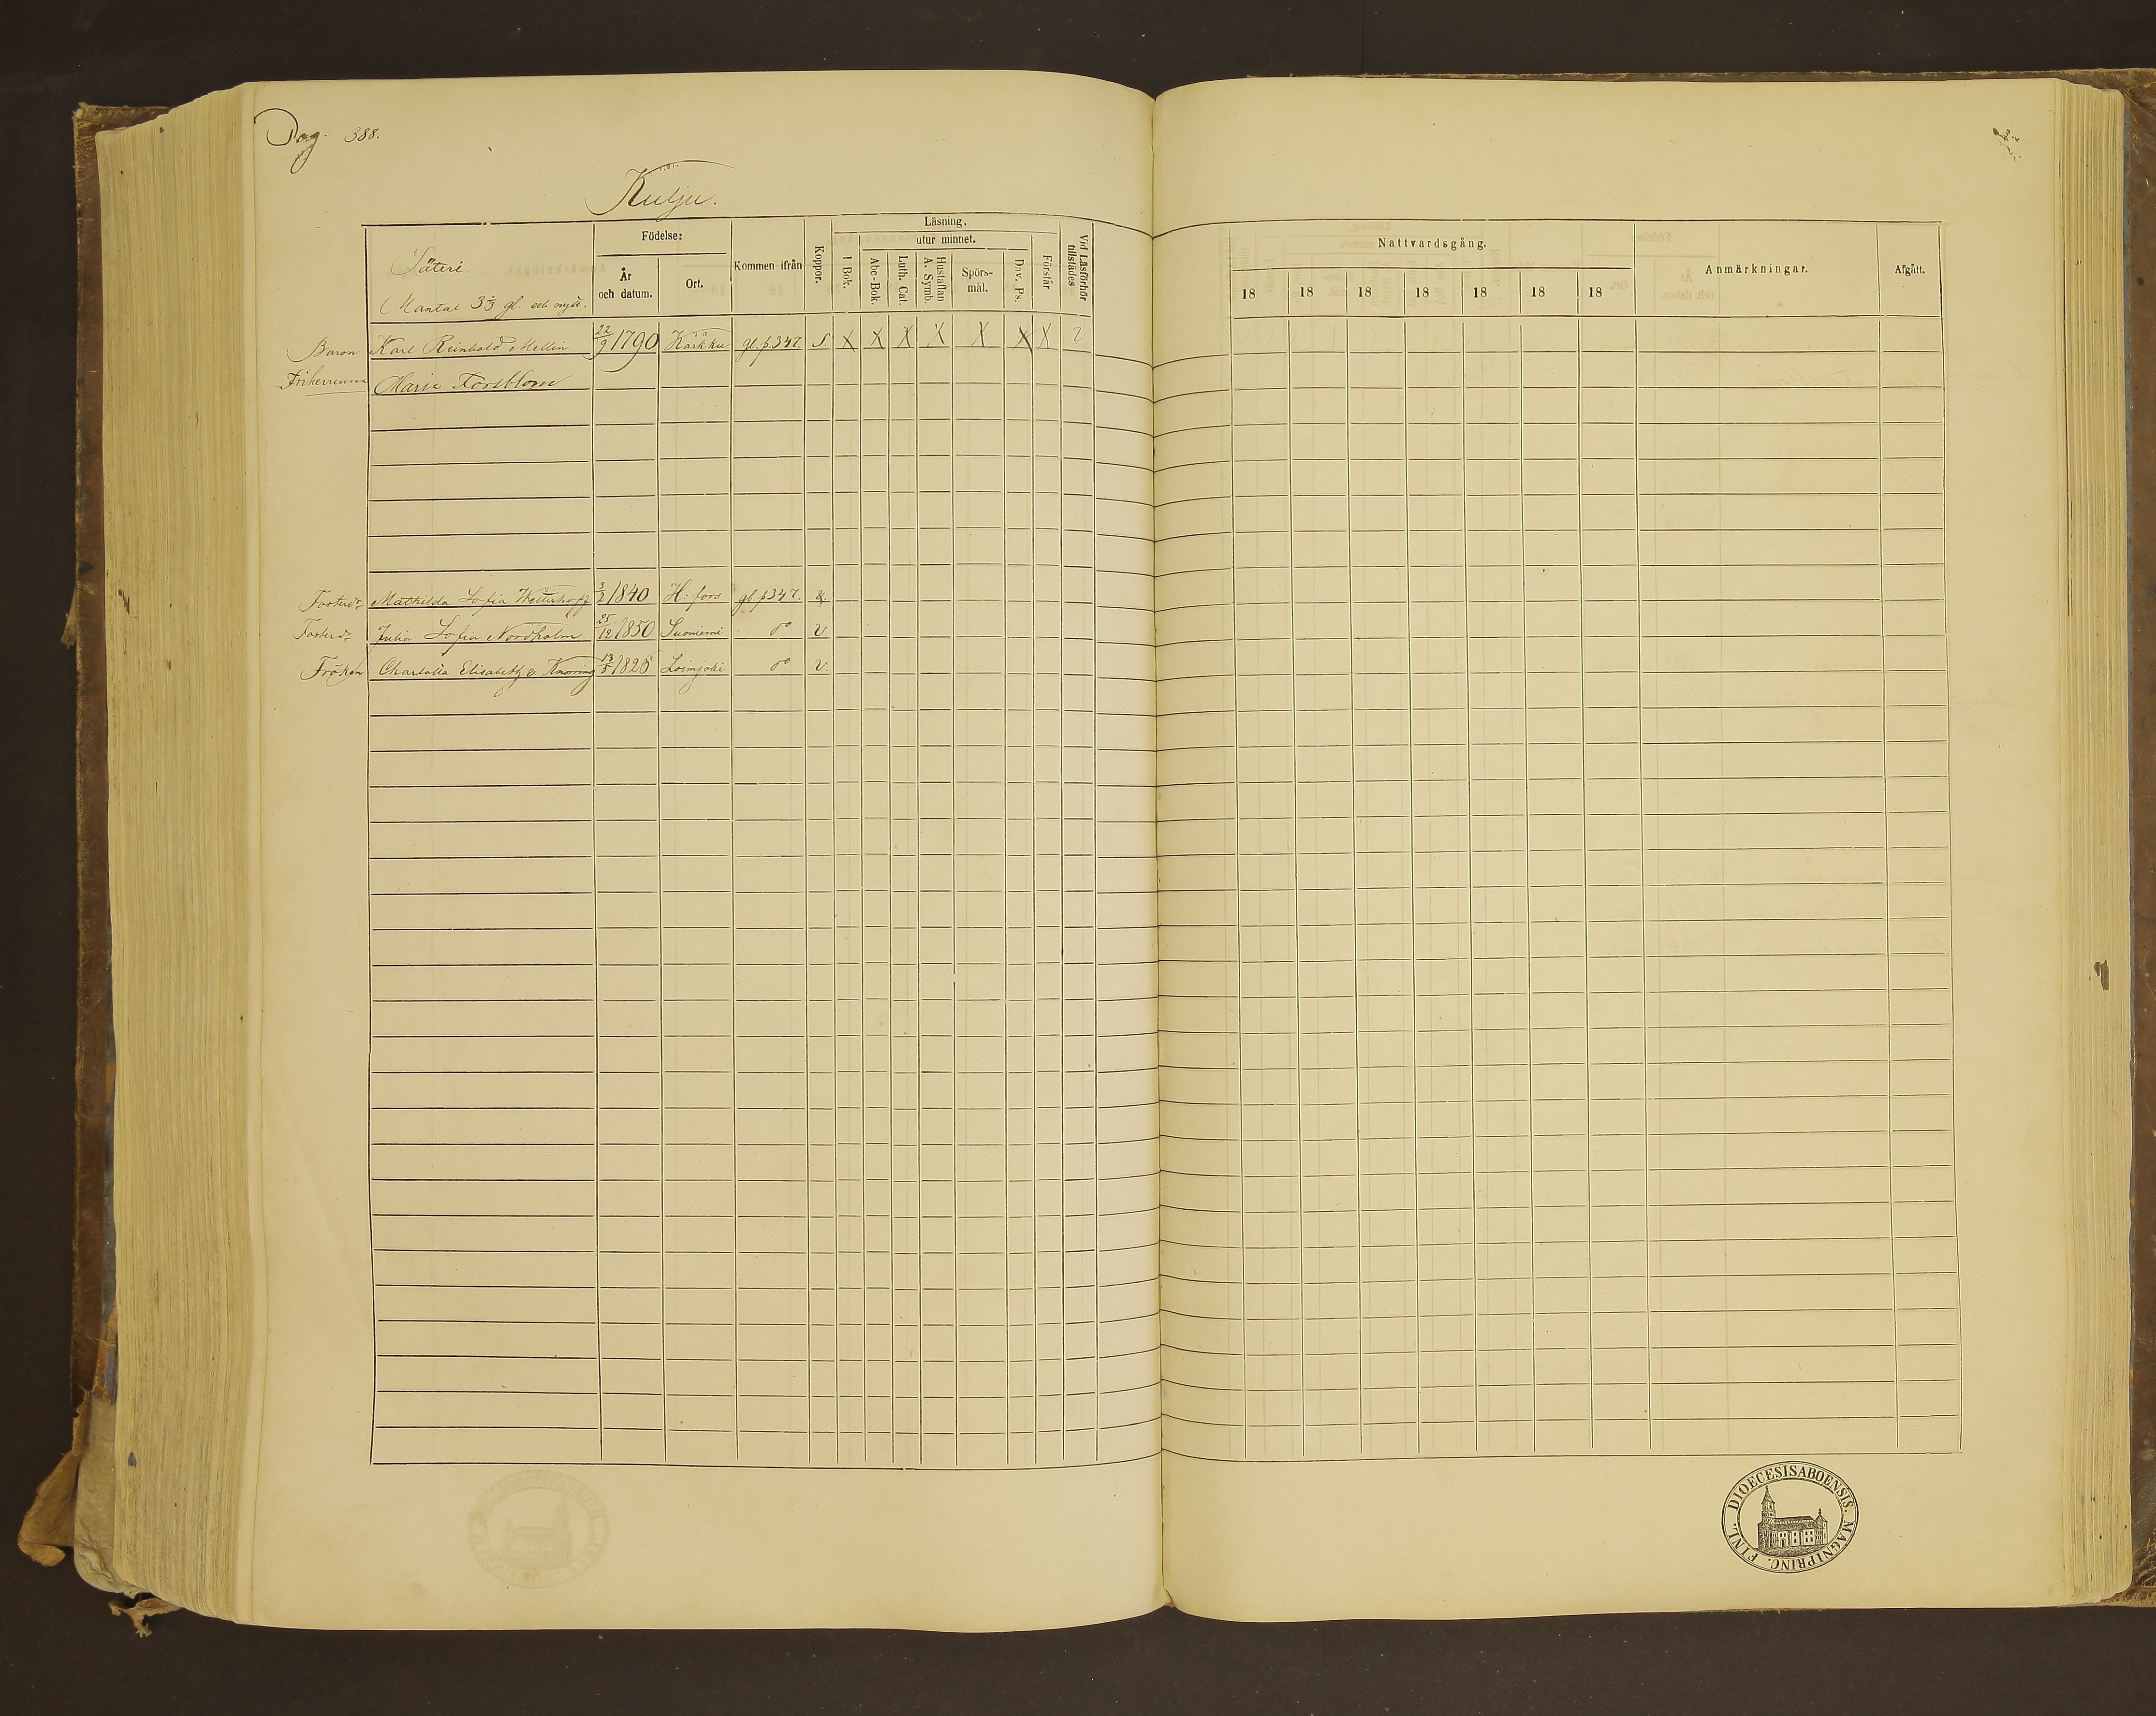 Pag. 388.
Kulju.
Säteri.
Mantal 3⅓ gl. och nytt.
Födelse:
År och datum.
Ort.
Kommen ifrån
Koppor.
Läsning,
I Bok.
utur minnet.
Abc-Bok.
Luth. Cat.
Hustaflan A. Symb.
Spörsmål.
Dav. Ps.
Förstår
Vid Läsförhör tillstädes
Nattvardsgång.
18 18 18 18 18 18 18
Anmärkningar.
Afgått.
Baron Karl Reinhold Mellin 22/9 1790 Karkku gl. p 347. S X X X X X X X 2
Friherrinna Maria Forsblom
Fosterdr. Mathilda Sofia Wetterhoff 3/2 1840 H:fors gl. p 347. &.
Fosterdr. Julia Sofia Nordholm 25/12 1850 Suoniemi do v
Fröken Charlotta Elisabeth v. Knorring 13/5 1826 Loimjoki do v.
DIOECESIS ABOENSIS. MAGNI PRINC. FINL.